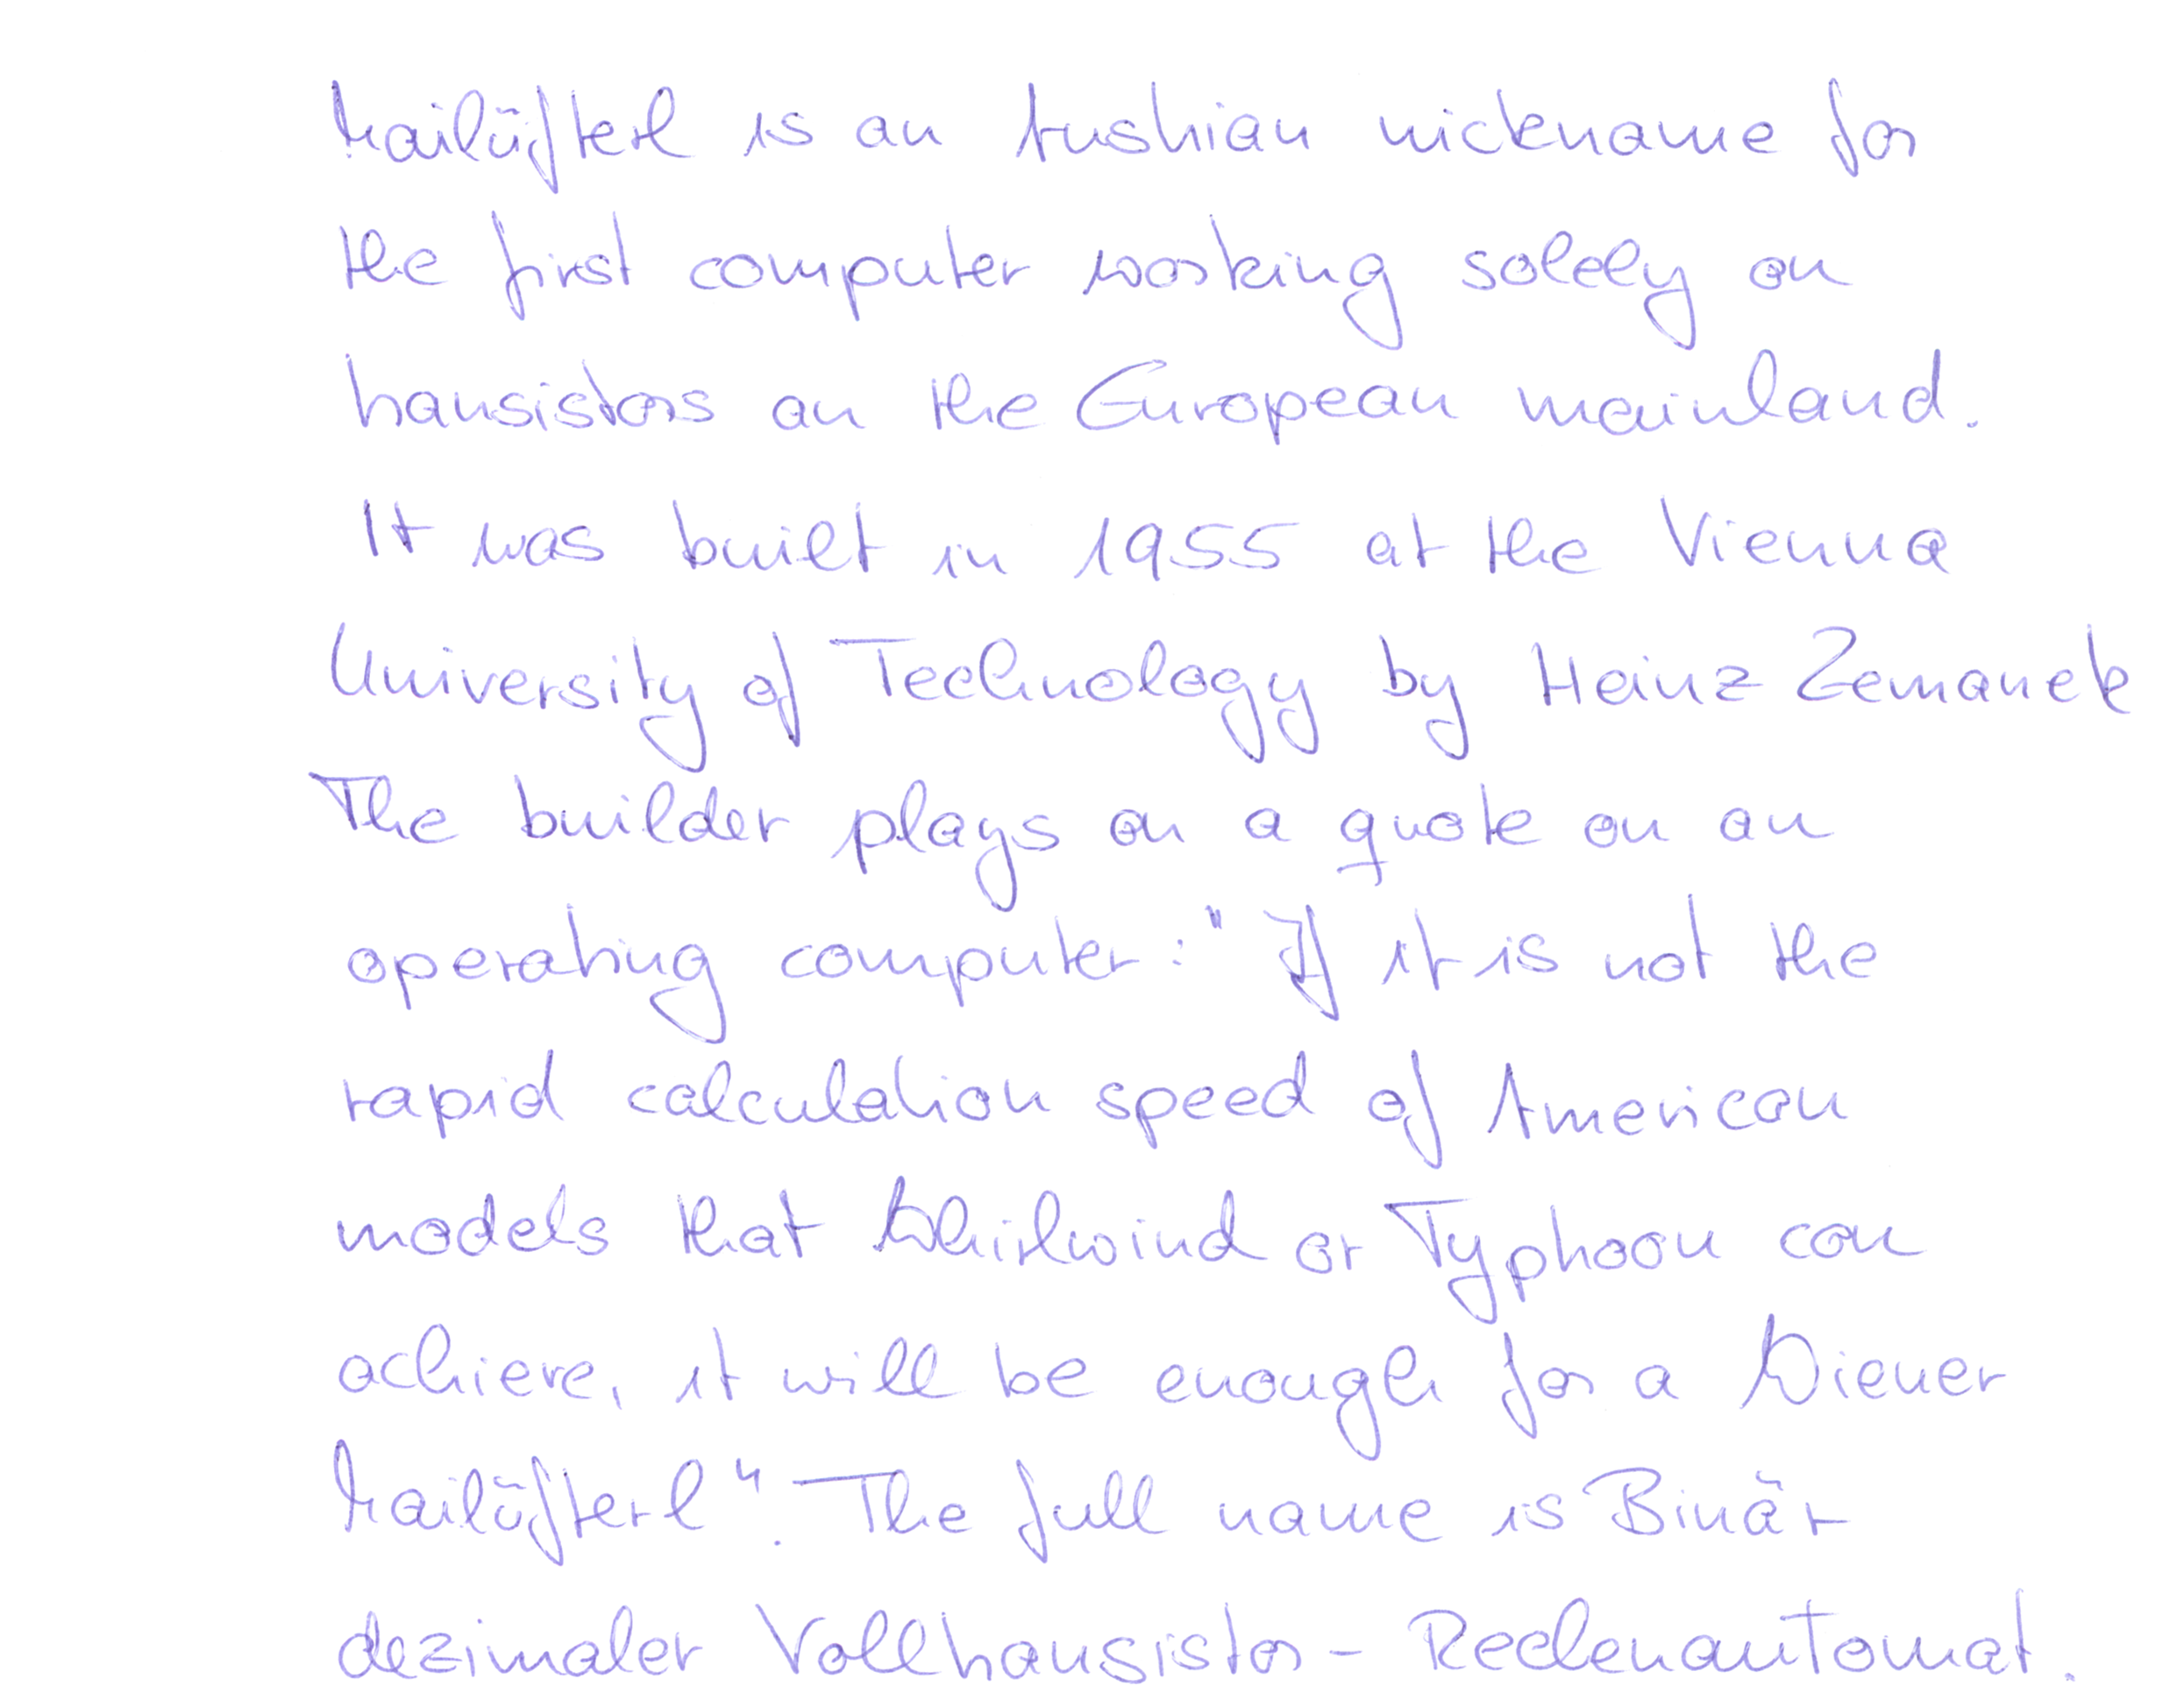 Mailüfterl is an Austrian nickname for
the first computer working solely on
transistors on the European mainland.
It was built in 1955 at the Vienna
University of Technology by Heinz Zemanek
The builder plays on a quote on an
operating computer: "If it is not the
rapid calculation speed of American
models that Whirlwind or Typhoon can
achieve, it will be enough for a Wiener
Mailüfterl". The full name is Binär
dezimaler Volltransistor-Rechenautomat.